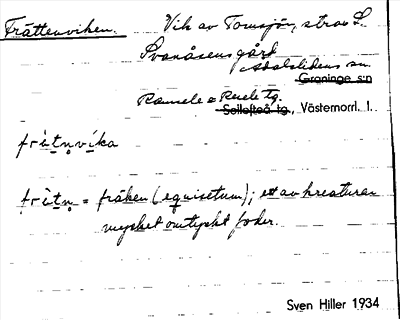 Frätterviken. Vik av Tomsjön, strax S.
Svanåsens gård
Ådalslidens sn.
Graninge s:n
Ramsele o Resele tg.
Sollefteå tg., Västernorrl. l.
frìtn̥vika
frìtn̥ = fräken (equisetum); ett av kreaturen
mycket omtyckt foder.
Sven Hiller 1934